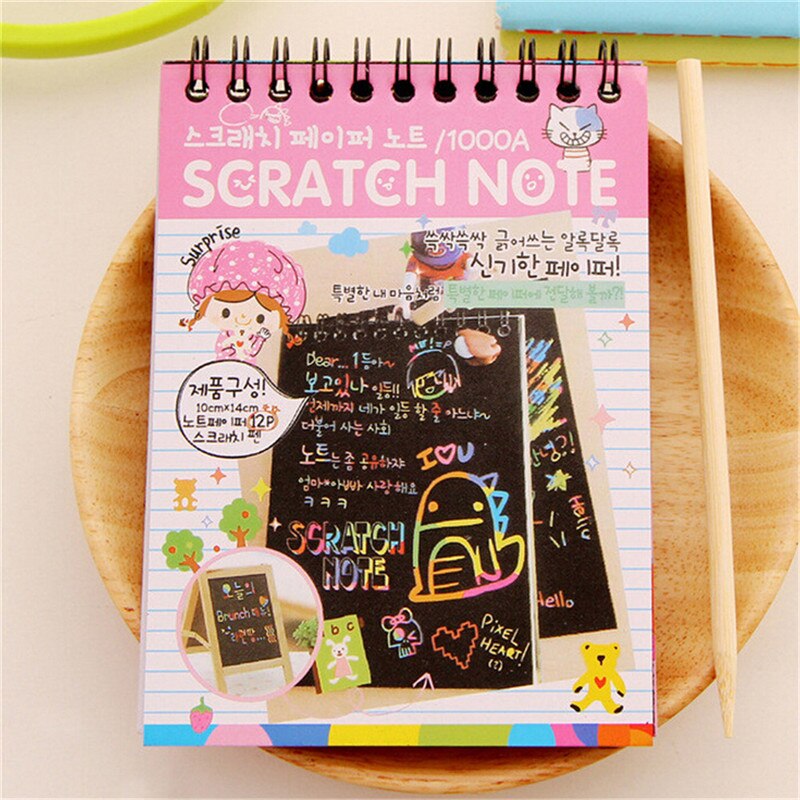 스크래치 페이퍼 노트 /1000A
SCRATCH NOTE
Surprise
쓱싹쓱싹 긁어쓰는 알록달록
신기한 페이퍼!
특별한 내 마음처럼! 특별한 페이퍼에 전달해 볼까?!
제품구성!
10cm×14cm
노트페이퍼 12P
스크래치 펜
Dear... 1등아~
보고있나 일등!!
언제까지 네가 일등 할 줄 아느냐~
더불어 사는 사회
노트는 좀 공유하쟈
엄마*아빠 사랑해요
ㅋㅋㅋ
I ♥ U
SCRATCH
NOTE
안녕?!
Hello
Hello
오늘의
Brunch 메뉴!
라면땅...
abc
PiXEL
HEART!
(?)